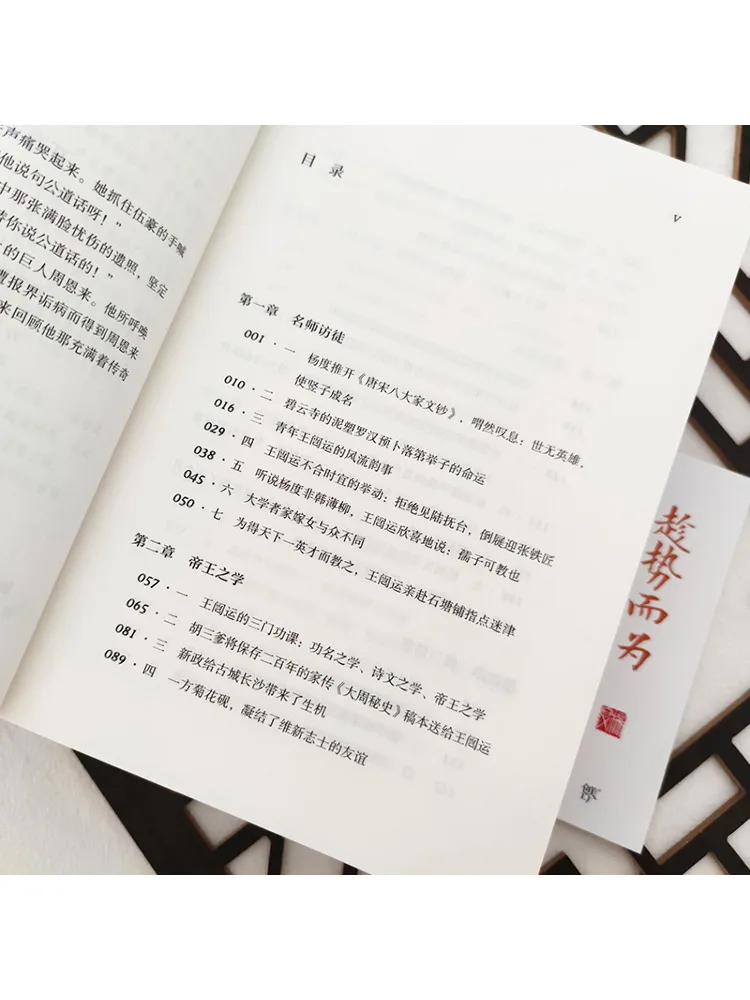 声痛哭起来。她抓住伍豪的手喊
他说句公道话呀！”
中那张满脸忧伤的遗照，坚定
替你说公道话的！”
的巨人周恩来。他所呼唤
遭报界诟病而得到周恩来
来回顾他那充满着传奇
目 录
V
第一章 名师访徒
001 · 一 杨度推开《唐宋八大家文钞》，喟然叹息：世无英雄，
使竖子成名
010 · 二 碧云寺的泥塑罗汉预卜落第举子的命运
016 · 三 青年王闿运的风流韵事
029 · 四 王闿运不合时宜的举动：拒绝见陆抚台，倒屣迎张铁匠
038 · 五 听说杨度非韩薄柳，王闿运欣喜地说：孺子可教也
045 · 六 大学者家嫁女与众不同
050 · 七 为得天下一英才而教之，王闿运亲赴石塘铺指点迷津
第二章 帝王之学
057 · 一 王闿运的三门功课：功名之学、诗文之学、帝王之学
065 · 二 胡三爹将保存二百年的家传《大周秘史》稿本送给王闿运
081 · 三 新政给古城长沙带来了生机
089 · 四 一方菊花砚，凝结了维新志士的友谊
趁势而为